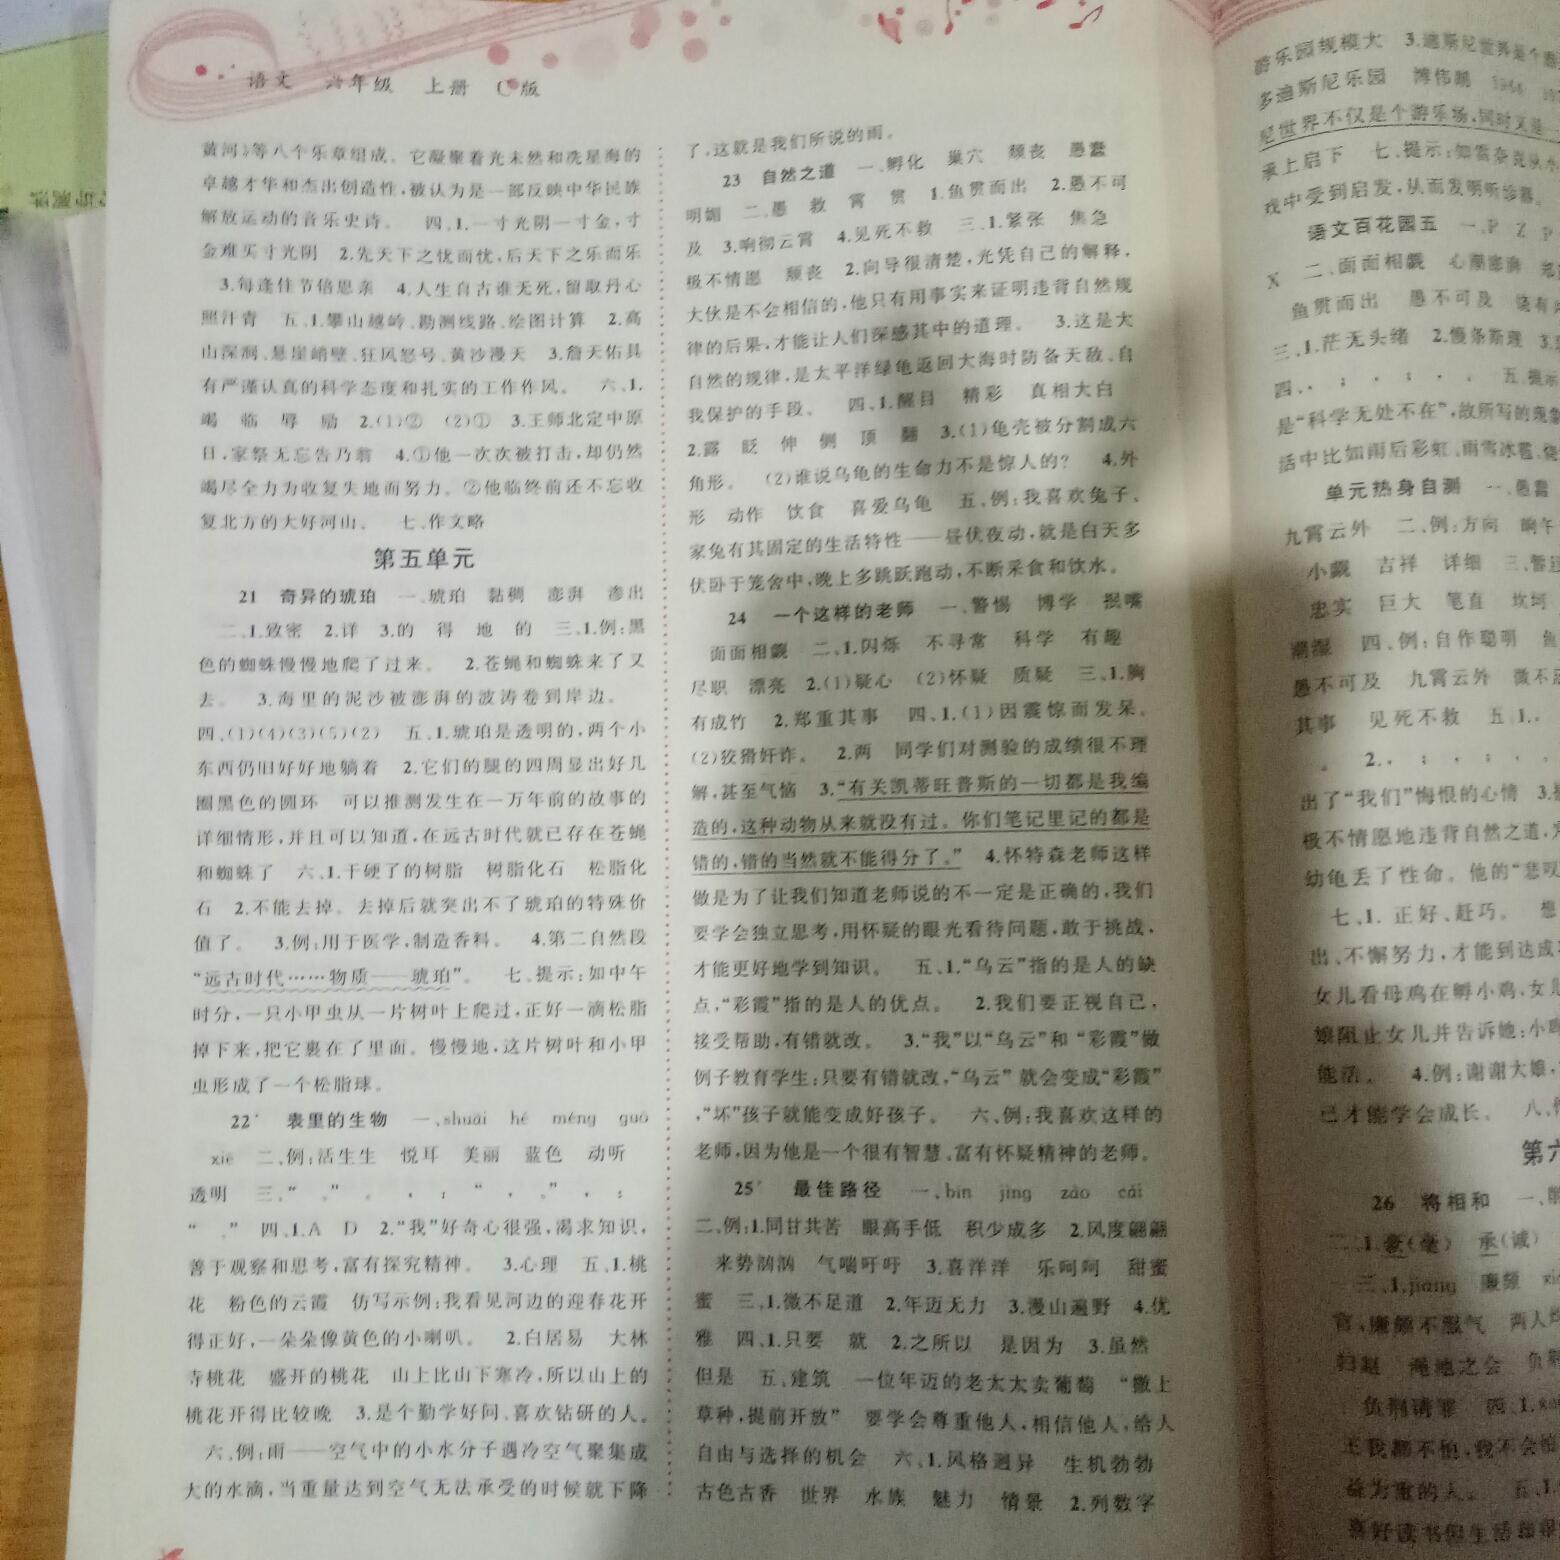 语文 六年级 上册 C版
黄河》等八个乐章组成。它凝聚着光未然和冼星海的
卓越才华和杰出创造性,被认为是一部反映中华民族
解放运动的音乐史诗。 四、1.一寸光阴一寸金,寸
金难买寸光阴 2.先天下之忧而忧,后天下之乐而乐
3.每逢佳节倍思亲 4.人生自古谁无死,留取丹心
照汗青 五、1.攀山越岭、勘测线路、绘图计算 2.高
山深涧、悬崖峭壁、狂风怒号、黄沙漫天 3.詹天佑具
有严谨认真的科学态度和扎实的工作作风。 六、1.
竭 临 辱 励 2.(1)② (2)① 3.王师北定中原
日,家祭无忘告乃翁 4.①他一次次被打击,却仍然
竭尽全力为收复失地而努力。②他临终前还不忘收
复北方的大好河山。 七、作文略
第五单元
21 奇异的琥珀 一、琥珀 黏稠 澎湃 渗出
二、1.致密 2.详 3.的 得 地 的 三、1.例:黑
色的蜘蛛慢慢地爬了过来。 2.苍蝇和蜘蛛来了又
去。 3.海里的泥沙被澎湃的波涛卷到岸边。
四、(1)(4)(3)(5)(2) 五、1.琥珀是透明的,两个小
东西仍旧好好地躺着 2.它们的腿的四周显出好几
圈黑色的圆环 可以推测发生在一万年前的故事的
详细情形,并且可以知道,在远古时代就已存在苍蝇
和蜘蛛了 六、1.干硬了的树脂 树脂化石 松脂化
石 2.不能去掉。去掉后就突出不了琥珀的特殊价
值了。 3.例:用于医学,制造香料。 4.第二自然段
“远古时代……物质——琥珀”。 七、提示:如中午
时分,一只小甲虫从一片树叶上爬过,正好一滴松脂
掉下来,把它裹在了里面。慢慢地,这片树叶和小甲
虫形成了一个松脂球。
22* 表里的生物 一、shuāi hé méng guō
xiē 二、例:活生生 悦耳 美丽 蓝色 动听
透明 三、“ 。” 。 , ; “ , 。” , ;
“ 。” 四、1.A D 2.“我”好奇心很强,渴求知识,
善于观察和思考,富有探究精神。 3.心理 五、1.桃
花 粉色的云霞 仿写示例:我看见河边的迎春花开
得正好,一朵朵像黄色的小喇叭。 2.白居易 大林
寺桃花 盛开的桃花 山上比山下寒冷,所以山上的
桃花开得比较晚 3.是个勤学好问、喜欢钻研的人。
六、例:雨——空气中的小水分子遇冷空气聚集成
大的水滴,当重量达到空气无法承受的时候就下降
了,这就是我们所说的雨。
23 自然之道 一、孵化 巢穴 颓丧 愚蠢
明媚 二、愚 救 霄 贯 1.鱼贯而出 2.愚不可
及 3.响彻云霄 4.见死不救 三、1.紧张 焦急
极不情愿 颓丧 2.向导很清楚,光凭自己的解释,
大伙是不会相信的,他只有用事实来证明违背自然规
律的后果,才能让人们深感其中的道理。 3.这是大
自然的规律,是太平洋绿龟返回大海时防备天敌、自
我保护的手段。 四、1.醒目 精彩 真相大白
2.露 眨 伸 侧 顶 翻 3.(1)龟壳被分割成六
角形。 (2)谁说乌龟的生命力不是惊人的? 4.外
形 动作 饮食 喜爱乌龟 五、例:我喜欢兔子,
家兔有其固定的生活特性——昼伏夜动,就是白天多
伏卧于笼舍中,晚上多跳跃跑动,不断采食和饮水。
24 一个这样的老师 一、警惕 博学 抿嘴
面面相觑 二、1.闪烁 不寻常 科学 有趣
尽职 漂亮 2.(1)疑心 (2)怀疑 质疑 三、1.胸
有成竹 2.郑重其事 四、1.(1)因震惊而发呆。
(2)狡猾奸诈。 2.两 同学们对测验的成绩很不理
解,甚至气恼 3.“有关凯蒂旺普斯的一切都是我编
造的,这种动物从来就没有过。你们笔记里记的都是
错的,错的当然就不能得分了。” 4.怀特森老师这样
做是为了让我们知道老师说的不一定是正确的,我们
要学会独立思考,用怀疑的眼光看待问题,敢于挑战,
才能更好地学到知识。 五、1.“乌云”指的是人的缺
点,“彩霞”指的是人的优点。 2.我们要正视自己,
接受帮助,有错就改。 3.“我”以“乌云”和“彩霞”做
例子教育学生:只要有错就改,“乌云”就会变成“彩霞”
,“坏”孩子就能变成好孩子。 六、例:我喜欢这样的
老师,因为他是一个很有智慧、富有怀疑精神的老师。
25* 最佳路径 一、bīn jìng zào cǎi
二、例:1.同甘共苦 眼高手低 积少成多 2.风度翩翩
来势汹汹 气喘吁吁 3.喜洋洋 乐呵呵 甜蜜
蜜 三、1.微不足道 2.年迈无力 3.漫山遍野 4.优
雅 四、1.只要 就 2.之所以 是因为 3.虽然
但是 五、建筑 一位年迈的老太太卖葡萄 “撒上
草种,提前开放” 要学会尊重他人,相信他人,给人
自由与选择的机会 六、1.风格迥异 生机勃勃
古色古香 世界 水族 魅力 情景 2.列数字
游乐园规模大 3.迪斯尼世界是个游
多迪斯尼乐园
尼世界不仅是个游乐场,同时又是一
承上启下 七、提示:如雷奈克从小
戏中受到启发,从而发明听诊器。
语文百花园五 一、P Z P
X 二、面面相觑 心潮澎湃
鱼贯而出 愚不可及 饶有
三、1.茫无头绪 2.慢条斯理 3.
四、. ; , ; , 。 五、提示
是“科学无处不在”,故所写的现象
活中比如雨后彩虹、雨雪冰雹、
单元热身自测 一、愚蠢
九霄云外 二、例:方向 晌午
小觑 吉祥 详细 三、
忠实 巨大 笔直 坎坷
潮湿 四、例:自作聪明 鱼
愚不可及 九霄云外 微不足
其事 见死不救 五、1.,
。 2., ; , ; ,
出了“我们”悔恨的心情 3.
极不情愿地违背自然之道,
幼龟丢了性命。他的“悲叹
七、1.正好、赶巧。 想
出、不懈努力,才能到达成
女儿看母鸡在孵小鸡,女
娘阻止女儿并告诉她:小
能活。 4.例:谢谢大娘,
己才能学会成长。 八、
第六
26 将相和 一、
(诚)
三、1.jiàng 廉颇
官,廉颇不服气 两人
归赵 渑池之会 负
负荆请罪 四、1.
王我都不怕,我不会怕
益为重的人。 五、1.
喜好读书但生活